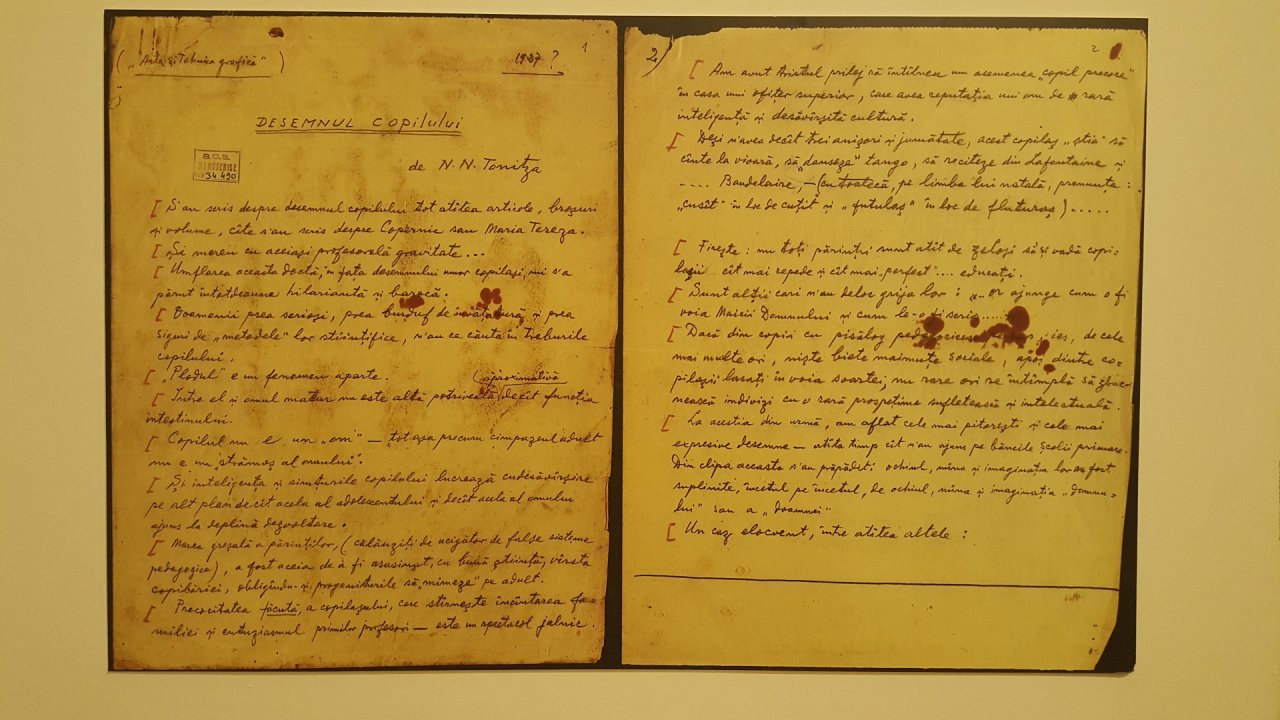 ("Arta și Tehnica grafică")
1937 ?
1
DESEMNUL COPILULUI
B.C.S.
MANUSCRISE
34 490
de N. N. Tonitza
S'au scris despre desemnul copilului tot atîtea articole, broșuri
și volume, cîte s'au scris despre Copernic sau Maria Tereza.
Și mereu cu aceiași profesorală gravitate...
Umflarea aceasta doctă, în fața desemnului unor copilași, mi s'a
părut întotdeauna hilariantă și barocă.
Doamenii prea serioși, prea burduf de învățătură și prea
siguri de "metodele" lor științifice, n'au ce căuta în treburile
copilului.
"Plodul" e un fenomen aparte.
(aproximativă
Între el și omul matur nu este altă potriveală decît funcția
intestinului.
Copilul nu e un "om" — tot așa precum cimpazeul adult
nu e un "strămoș al omului".
Și inteligența și simțurile copilului lucrează cu desăvîrșire
pe alt plan decît acela al adolescentului și decît acela al omului
ajuns la deplină dezvoltare.
Marea greșală a părinților, (călăuziți de ucigător de false sisteme
pedagogice), a fost aceia de a fi asasinat, cu bună știință, vîrsta
copilăriei, obligîndu-și progeniturile să "mimeze" pe adult.
Precocitatea făcută, a copilașului, care stîrnește încîntarea fa-
miliei și entuziasmul primilor profesori — este un spectacol jalnic.
2
2
Am avut tristul prilej să întîlnesc un asemenea "copil precoce"
în casa unui ofițer superior, care avea reputația unui om de rară
inteligență și desăvîrșită cultură.
Deși n'avea decît trei anișori și jumătate, acest copilaș "știa" să
cînte la vioară, să "danseze" tango, să reciteze din Lafontaine și
.... Baudelaire, — (cu toatecă, pe limba lui natală, pronunța :
"cusît" în loc de cuțit și "futulaș" în loc de fluturaș).....
Firește : nu toți părinții sunt atît de zeloși să-și vadă copi-
lașii cît mai repede și cît mai "perfect".... educați.
Sunt alții cari n'au deloc grija lor : "..or ajunge cum o fi
voia Maicii Domnului și cum le-o fi scris....
Dacă din copiii cu pisălog ies, de cele
mai multe ori, niște biete maimuțe sociale, apoi dintre co-
pilașii lasați în voia soartei, nu rare ori se întîmplă să țîșnească
nească indivizi cu o rară prospețime sufletească și intelectuală.
La aceștia din urmă, am aflat cele mai pitorești și cele mai
expresive desemne — atîta timp cît n'au ajuns pe băncile școlii primare.
Din clipa aceasta s'au prăpădit: ochiul, mîna și imaginația lor au fost
suplinite, încetul pe încetul, de ochiul, mîna și imaginația "domnu-
lui" sau a "doamnei"
Un caz elocvent, între atîtea altele :